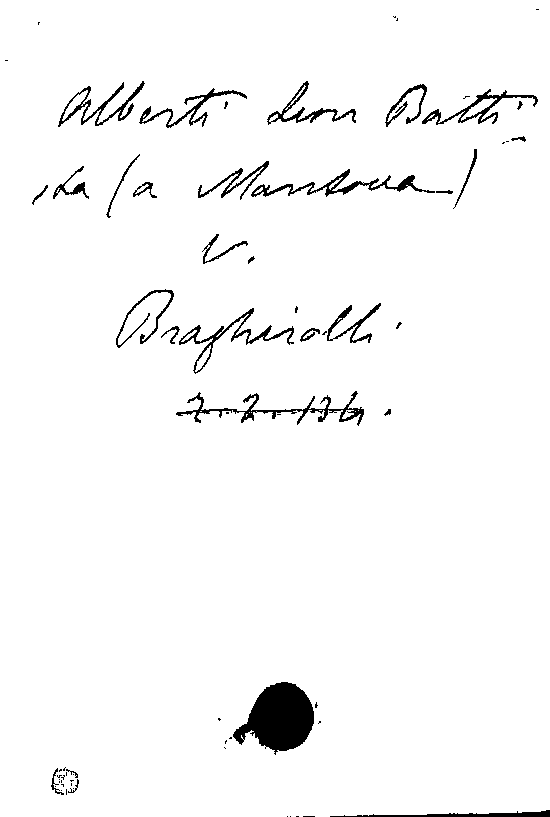 Alberti Leon Batti-
sta (a Mantova)
V.
Braghirolli.